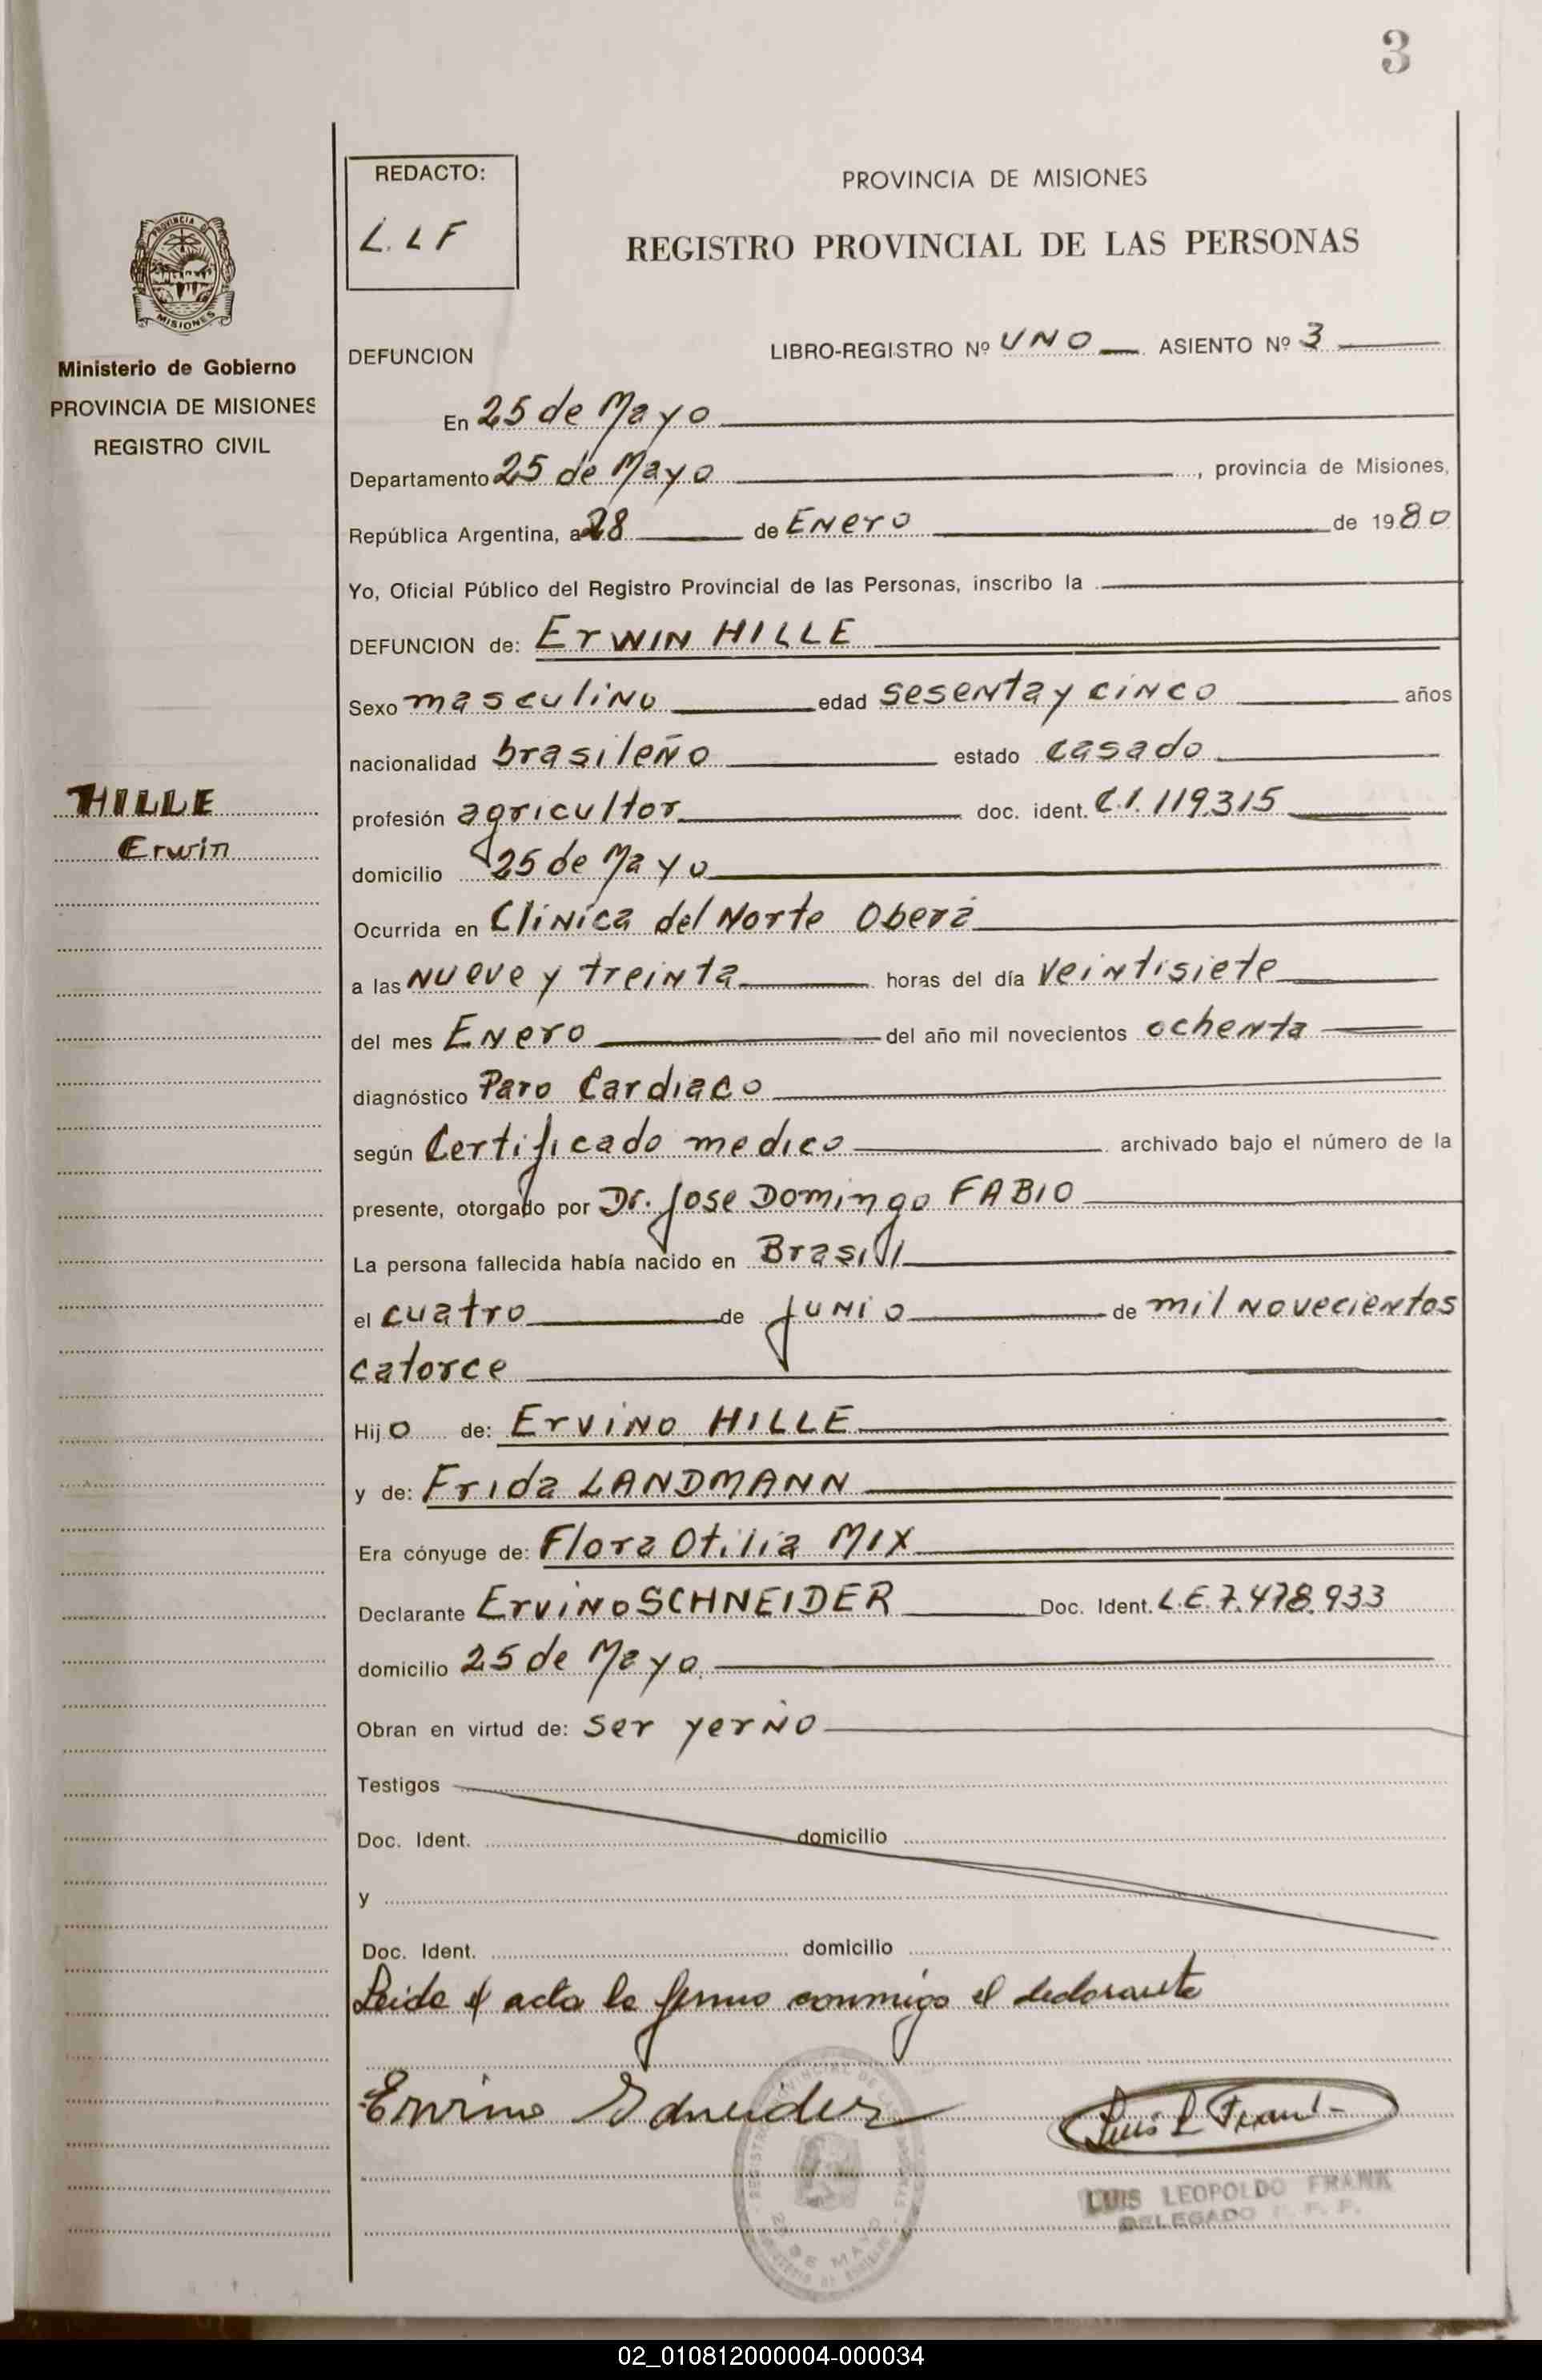 3
REDACTO:
L. L F
PROVINCIA DE MISIONES
REGISTRO PROVINCIAL DE LAS PERSONAS
PROVINCIA D
MISIONES
Ministerio de Gobierno
PROVINCIA DE MISIONES
REGISTRO CIVIL
HILLE
Erwin
DEFUNCION LIBRO-REGISTRO Nº UNO ASIENTO Nº 3
En 25 de Mayo
Departamento 25 de Mayo, provincia de Misiones,
República Argentina, a 28 de Enero de 1980
Yo, Oficial Público del Registro Provincial de las Personas, inscribo la
DEFUNCION de: Erwin HILLE
Sexo masculino edad sesenta y cinco años
nacionalidad brasileño estado casado
profesión agricultor doc. ident. C.I. 119.315
domicilio 25 de Mayo
Ocurrida en Clinica del Norte Oberá
a las nueve y treinta horas del día veintisiete
del mes Enero del año mil novecientos ochenta
diagnóstico Paro Cardiaco
según Certificado medico archivado bajo el número de la
presente, otorgado por Dr. Jose Domingo FABIO
La persona fallecida había nacido en Brasil
el cuatro de junio de mil novecientos
catorce
Hijo de: Ervino HILLE
y de: Frida LANDMANN
Era cónyuge de: Flora Otilia MIX
Declarante Ervino SCHNEIDER Doc. Ident. L.E. 7.478.933
domicilio 25 de Mayo.
Obran en virtud de: ser yerno
Testigos
Doc. Ident. domicilio
y
Doc. Ident. domicilio
Leida el acta la firmo conmigo el declarante
Ervino Schneider
Luis L Frank
LUIS LEOPOLDO FRANK
DELEGADO
25 DE MAYO
02_010812000004-000034